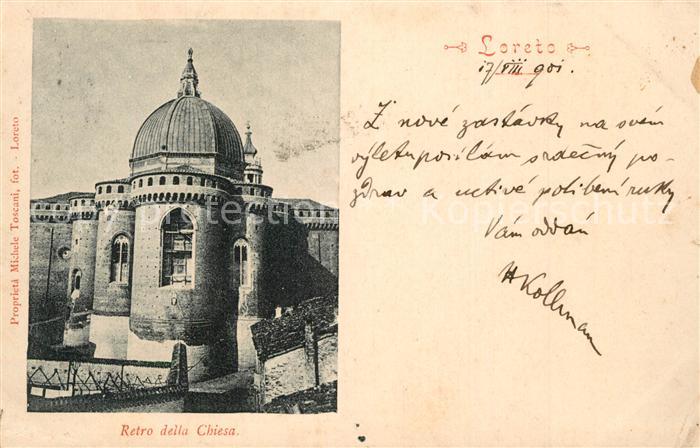 Loreto
17/VIII 901.
Z nové zastávky na svém
výletu posílám srdečný po-
zdrav a uctivé políbení ruky
Vám oddaný
HKollman
Proprietà Michele Toscani, fot. - Loreto
Retro della Chiesa.